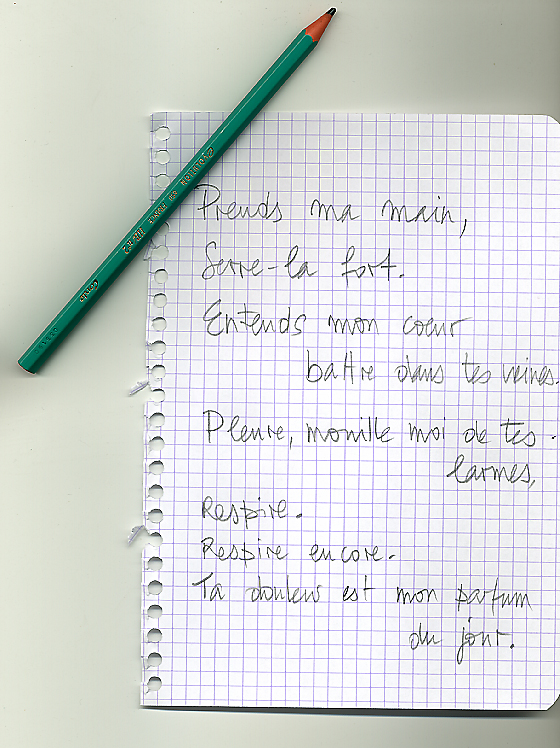 Prends ma main,
Serre-la fort.
Entends mon coeur
battre dans tes veines.
Pleure, mouille moi de tes
larmes,
Respire.
Respire encore.
Ta douleur est mon parfum
du jour.